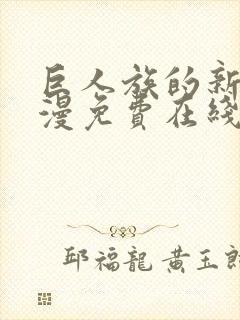 巨人族的新
漫免費在綫
邱福龍 黄玉郎